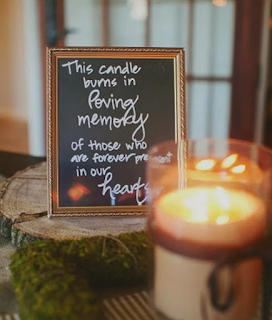 This candle
burns in
loving
memory
of those who
are forever present
in our
hearts